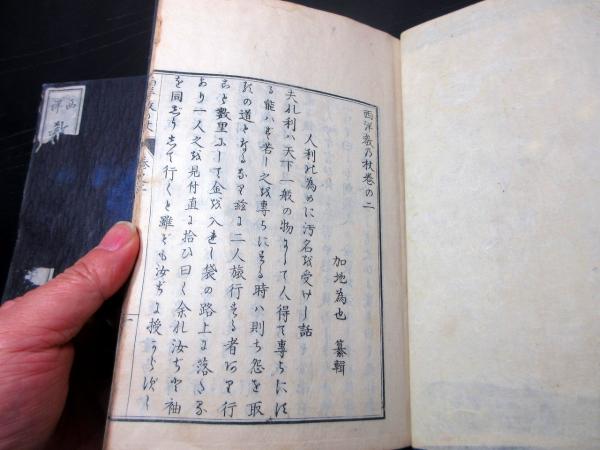 西洋教乃杖巻の二
加地為也 纂輯
人利の為めに汚名を受けし話
夫れ利ハ天下一般の物にして人得て専らにす
る能ハず若し之を専らにする時ハ則ち怨を取
るの道となるなり茲に二人旅行する者あり行
こと數里にして金を入れし袋の路上に落たる
あり一人之を見付直に拾ひ曰く余れ汝ぢと袖
を同ふして行くと雖ども汝ぢに授
一
西洋教